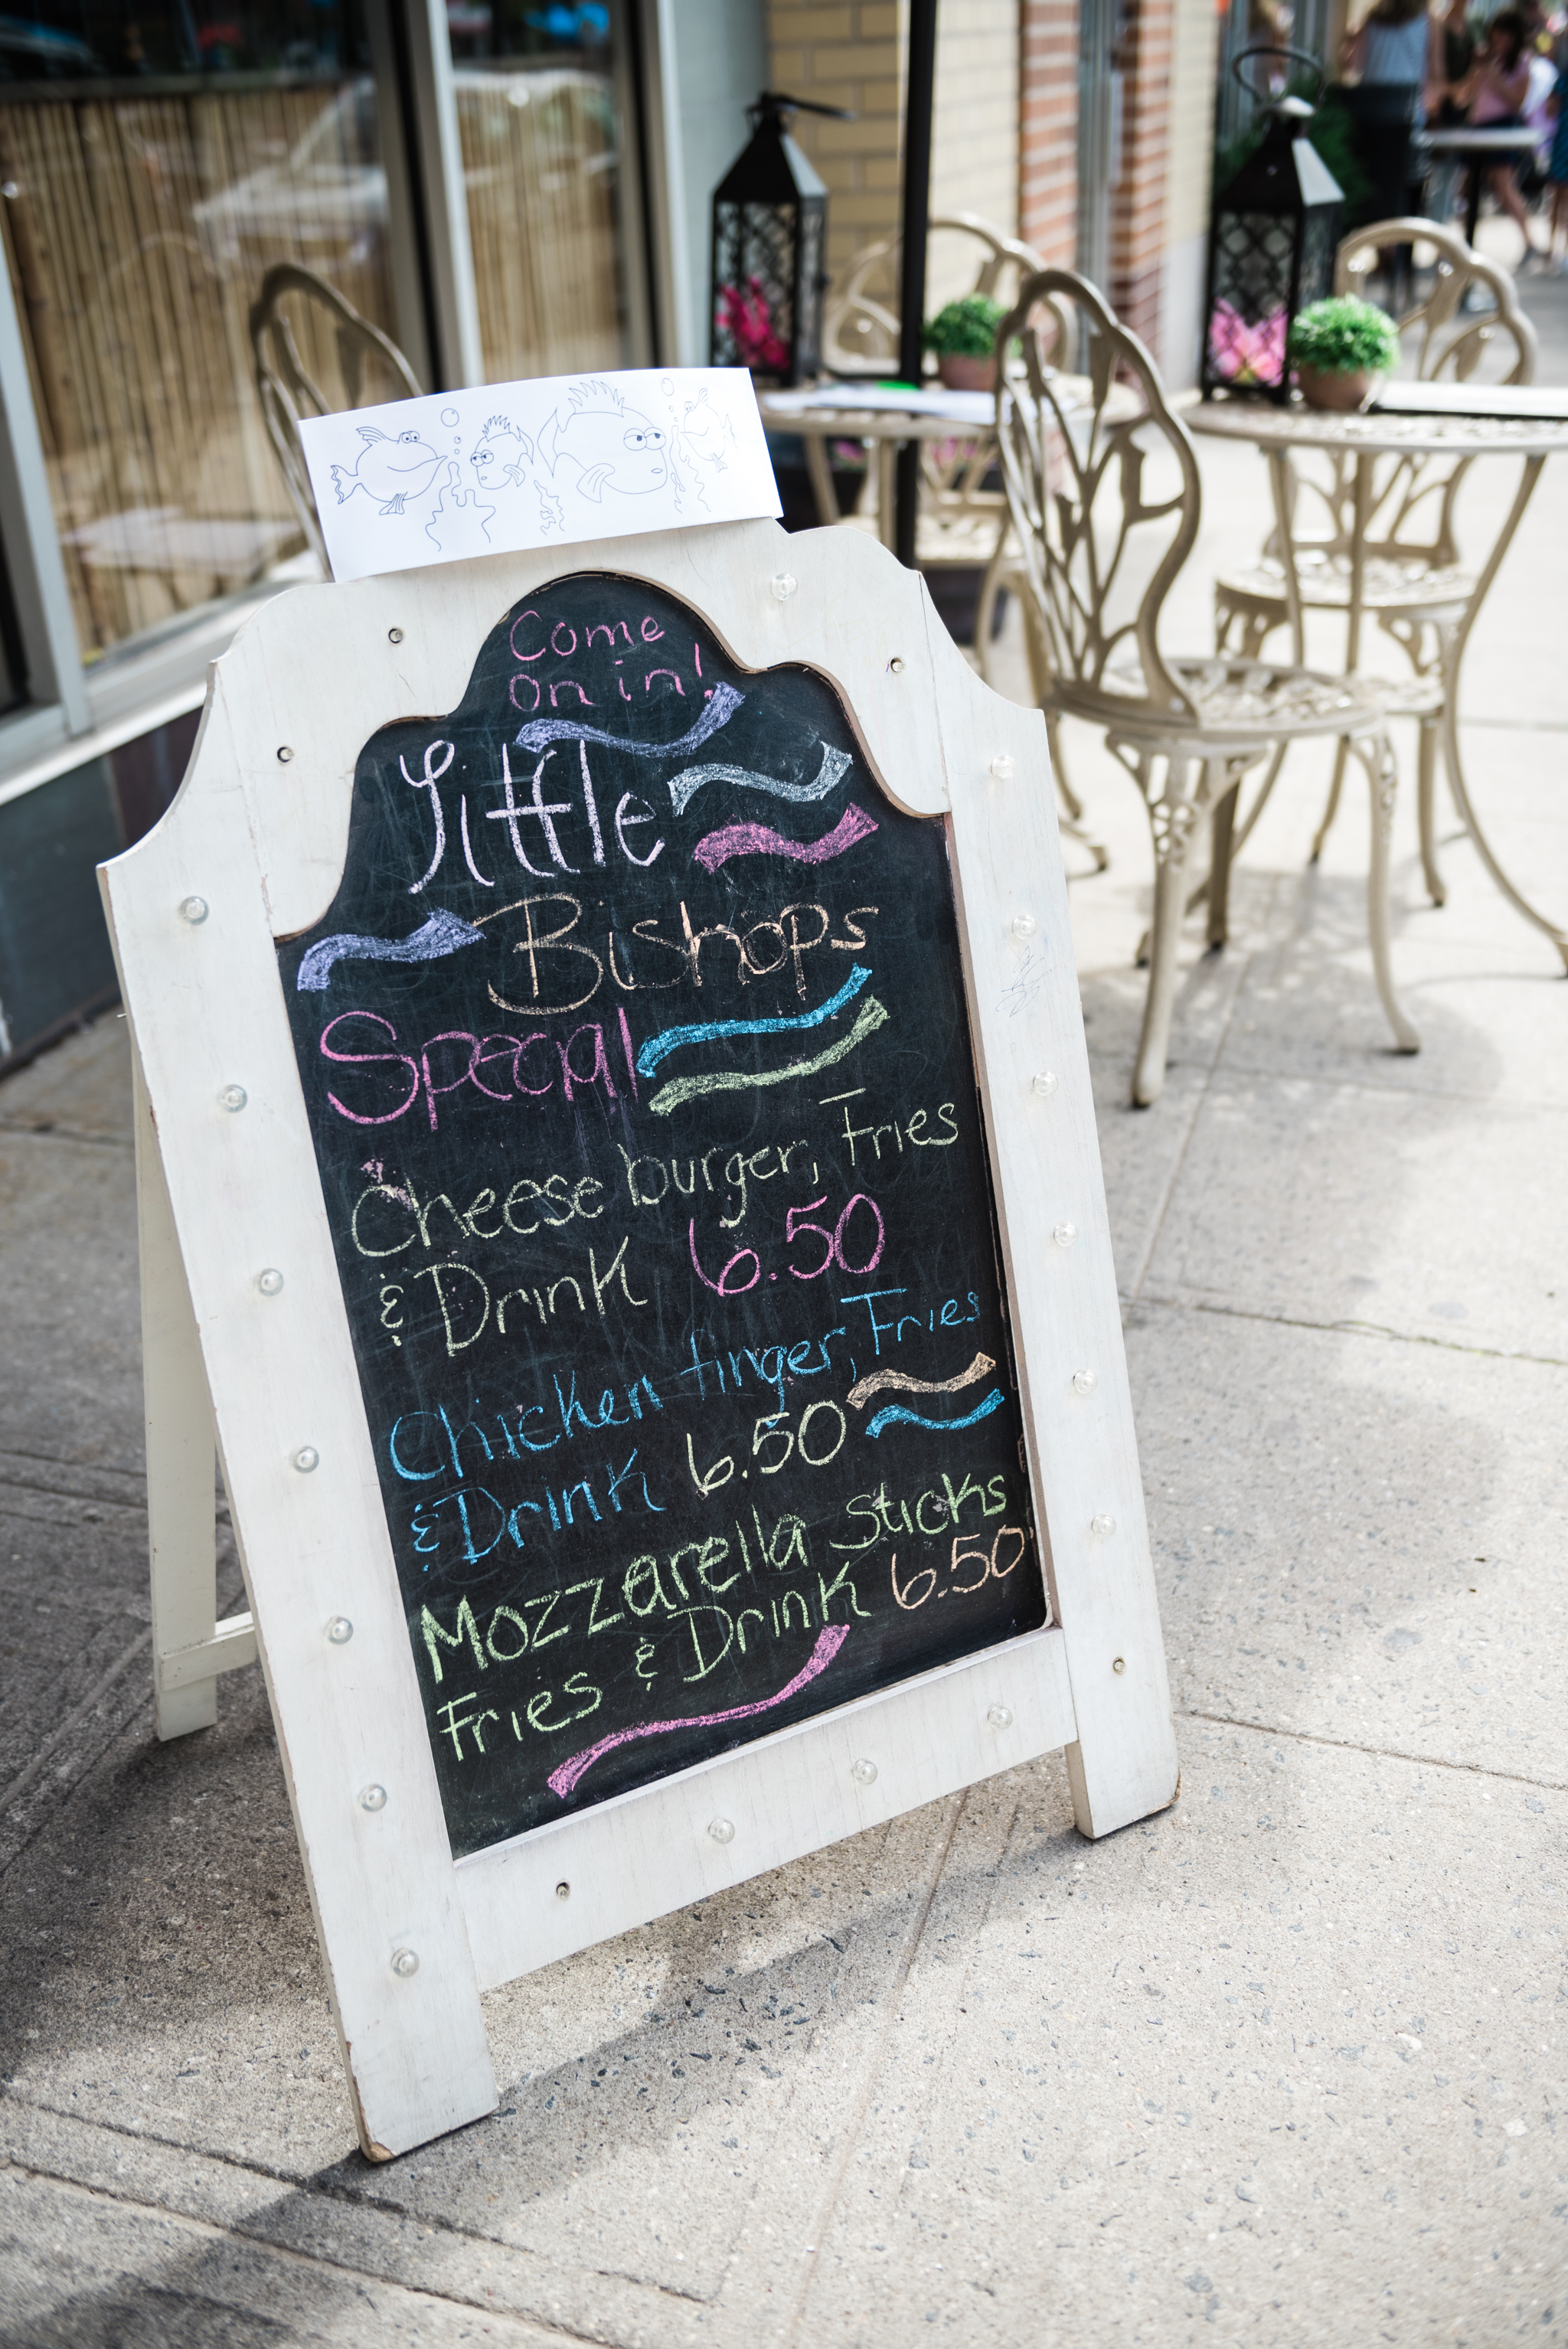 Come
on in!
Little
Bishops
Special
Cheese burger, Fries
& Drink 6.50
Chicken finger, Fries
& Drink 6.50
Mozzarella sticks
Fries & Drink 6.50